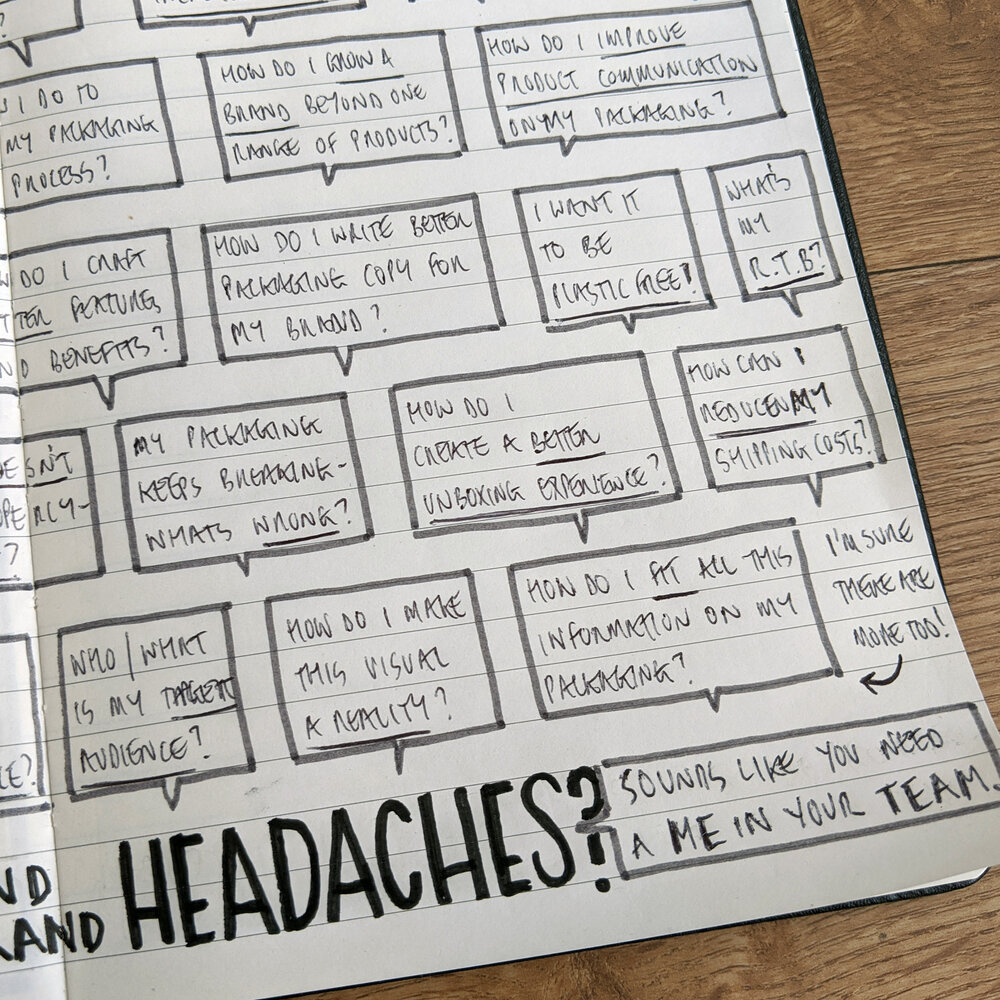 I DO TO
MY PACKAGING
PROCESS?
HOW DO I GROW A
BRAND BEYOND ONE
RANGE OF PRODUCTS?
HOW DO I IMPROVE
PRODUCT COMMUNICATION
ON MY PACKAGING?
DO I CRAFT
FEATURES
BENEFITS?
HOW DO I WRITE BETTER
PACKAGING COPY FOR
MY BRAND?
I WANT IT
TO BE
PLASTIC FREE!
WHAT'S
MY
R.T.B?
MY PACKAGING
KEEPS BREAKING-
WHATS WRONG?
HOW DO I
CREATE A BETTER
UNBOXING EXPERIENCE?
HOW CAN I
REDUCE MY
SHIPPING COSTS?
WHO/WHAT
IS MY TARGET
AUDIENCE?
HOW DO I MAKE
THIS VISUAL
A REALITY?
HOW DO I FIT ALL THIS
INFORMATION ON MY
PACKAGING?
I'M SURE
THERE ARE
MORE TOO!
HEADACHES?
SOUNDS LIKE YOU NEED
A ME IN YOUR TEAM.